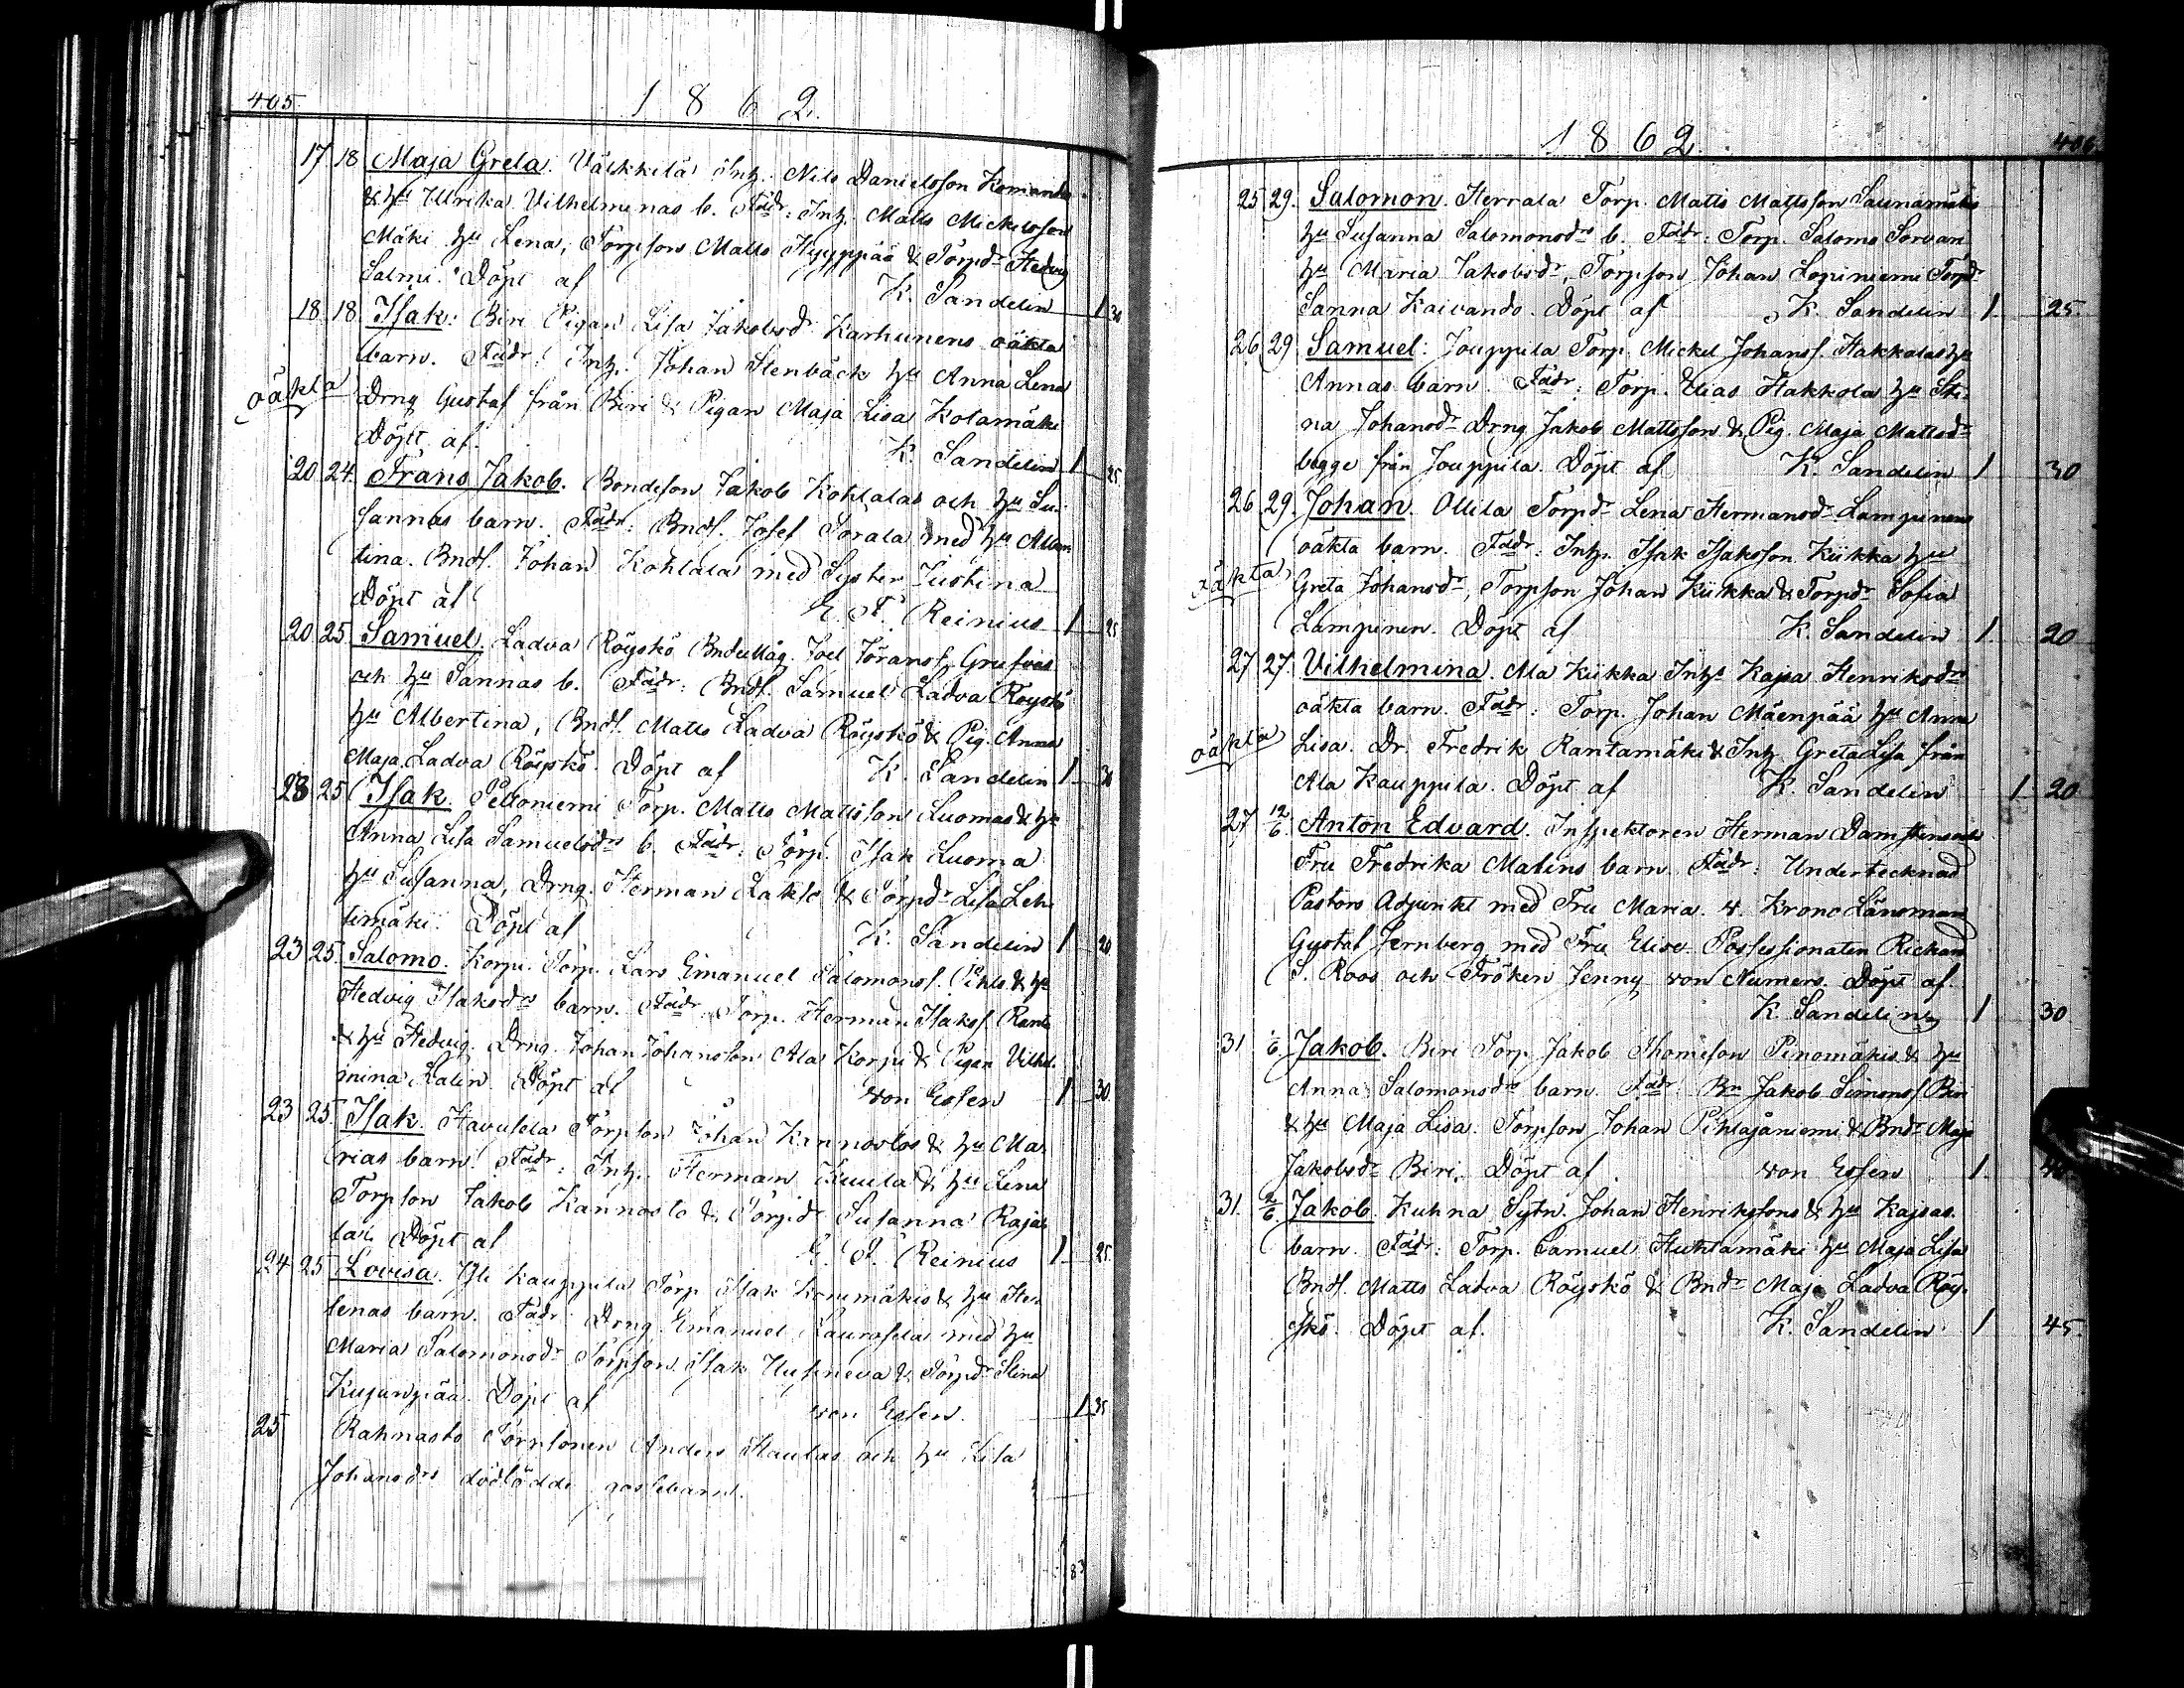 405.
1862.
17 18 Maja Greta. Välkkilä Inh. Nils Danielsson
& hu Ulrika Vilhelminas b. Fadr: Inh. Matts Mickelsson
Mäki hu Lena, Torpson Matts Hyyppää & Torpdr Hedvig
Salmi. Döpt af K. Sandelin 1 30
18. 18. Isak: Biri Pigan Lisa Jakobsdr Karhunens oäkta
barn. Fadr: Inh. Johan Stenbäck hu Anna Lena
oäkta
Drng Gustaf från Biri & Pigan Maja Lisa Kotamäki
Döpt af. K. Sandelin 1 25
20 24. Frans Jakob. Bondeson Jakob Kohtalas och hu Su-
sannas barn. Fadr: Bnds. Josef Sorala med hu Alber
tina. Bnds. Johan Kohtala med Syster Justina
Döpt af E. F. Reinius 1 25
20 25. Samuel. Ladva Röyskö Joel Göranss.
och hu Sannas b. Fadr: Bnds. Samuel Ladva Röyskö
hu Albertina, Bnds. Matts Ladva Röyskö & Pig. Anna
Maja Ladva Röyskö. Döpt af K. Sandelin 1 30
23 25 Isak. Peltoniemi Torp. Matts Mattsson Luomas & hu
Anna Lisa Samuelsdrs b. Fadr: Torp. Isak Luoma
hu Susanna, Drng. Herman Lakso & Torpdr Lisa Leh-
timäki. Döpt af K. Sandelin 1 20
23 25. Salomo. Korpi Torp. Lars Emanuel Salomonss. & hu
Hedvig Isaksdrs barn. Fadr. Torp. Herman Isakss. Ranta
& hu Hedvig. Drng. Johan Johansson Ala Korpi & Pigan Vilhel-
mina Latin. Döpt af von Essen 1 30.
23 25. Isak. Havusela Torpson Johan Kannostos & hu Ma-
rias barn. Fadr: Inh. Herman Kuula & hu Lena
Torpson Jakob Kannosto & Torpdr Susanna Raja-
laä. Döpt af E. F. Reinius 1 25.
24 25 Lovisa. Yli Kauppila Torp Isak & hu He-
lenas barn. Fadr: Drng Emanuel med hu
Maria Salomonsdr Torpson Isak & Torpdr Stina
Kujanpää. Döpt af von Essen. 1 35
25 Rahnasto Anders och hu Lisa
Johansdrs dödfödde gossebarn.
83
1862.
406.
25 29. Salomon. Herrala Torp. Matts Mattsson Saunamäkis
hu Susanna Salomonsdrs b. Fadr: Torp. Salomo Sorvari
hu Maria Jakobsdr, Torpson Johan Lopiniemi Torpdr
Sanna Kaivando. Döpt af K. Sandelin 1. 25.
26 29 Samuel: Jouppila Torp. Mickel Johanss. Hakkolas hu
Annas barn. Fadr: Torp. Elias Hakkola hu Sti-
na Johansdr Drng Jakob Mattsson & Pig. Maja Mattsdr
begge från Jouppila. Döpt af K. Sandelin 1. 30
26 29. Johan. Ollila Torpdr Lena Hermansdr Lampinens
oäkta barn. Fadr: Inh. Isak Isaksson Kiikka hu
oäkta
Greta Johansdr, Torpson Johan Kiikka & Torpdr Sofia
Lampinen. Döpt af K. Sandelin 1. 20
27 27. Vilhelmina. Ala Kiikka Inhs Kajsa Henriksdrs
oäkta barn. Fadr: Torp. Johan Mäenpää hu Anna
oäkta
Lisa. Dr. Fredrik Rantamäki & Inh. Greta Lisa från
Ala Kauppila. Döpt af K. Sandelin 1 20
27 12/6. Anton Edvard. Inspektoren Herman
Fru Fredrika Malins barn. Fadr: Undertecknad
Pastors Adjunkt med Fru Maria. v. Krono Länsman
Gustaf Jernberg med Fru Elise. Possessionaten Rickard
S. Roos och Fröken Jenny von Numers. Döpt af.
K. Sandelin 1 30
31 1/6. Jakob. Biri Torp Jakob Thomsson Pinomäkis & hu
Anna Salomonsdrs barn. Fadr: Bn Jakob Simonss Biri
& hu Maja Lisa. Torpson Johan Pihlajaniemi & Bndr Maja
Jakobsdr Biri. Döpt af von Essen 1.
31. 2/6. Jakob. Kuhna Sytn. Johan Henrikssons & hu Kajsas
barn. Fadr: Torp. Samuel Huhtamäki hu Maja Lisa
Bnds. Matts Ladva Röyskö & Bndr Maja Ladva Röy-
skö. Döpt af. K. Sandelin 1 45.